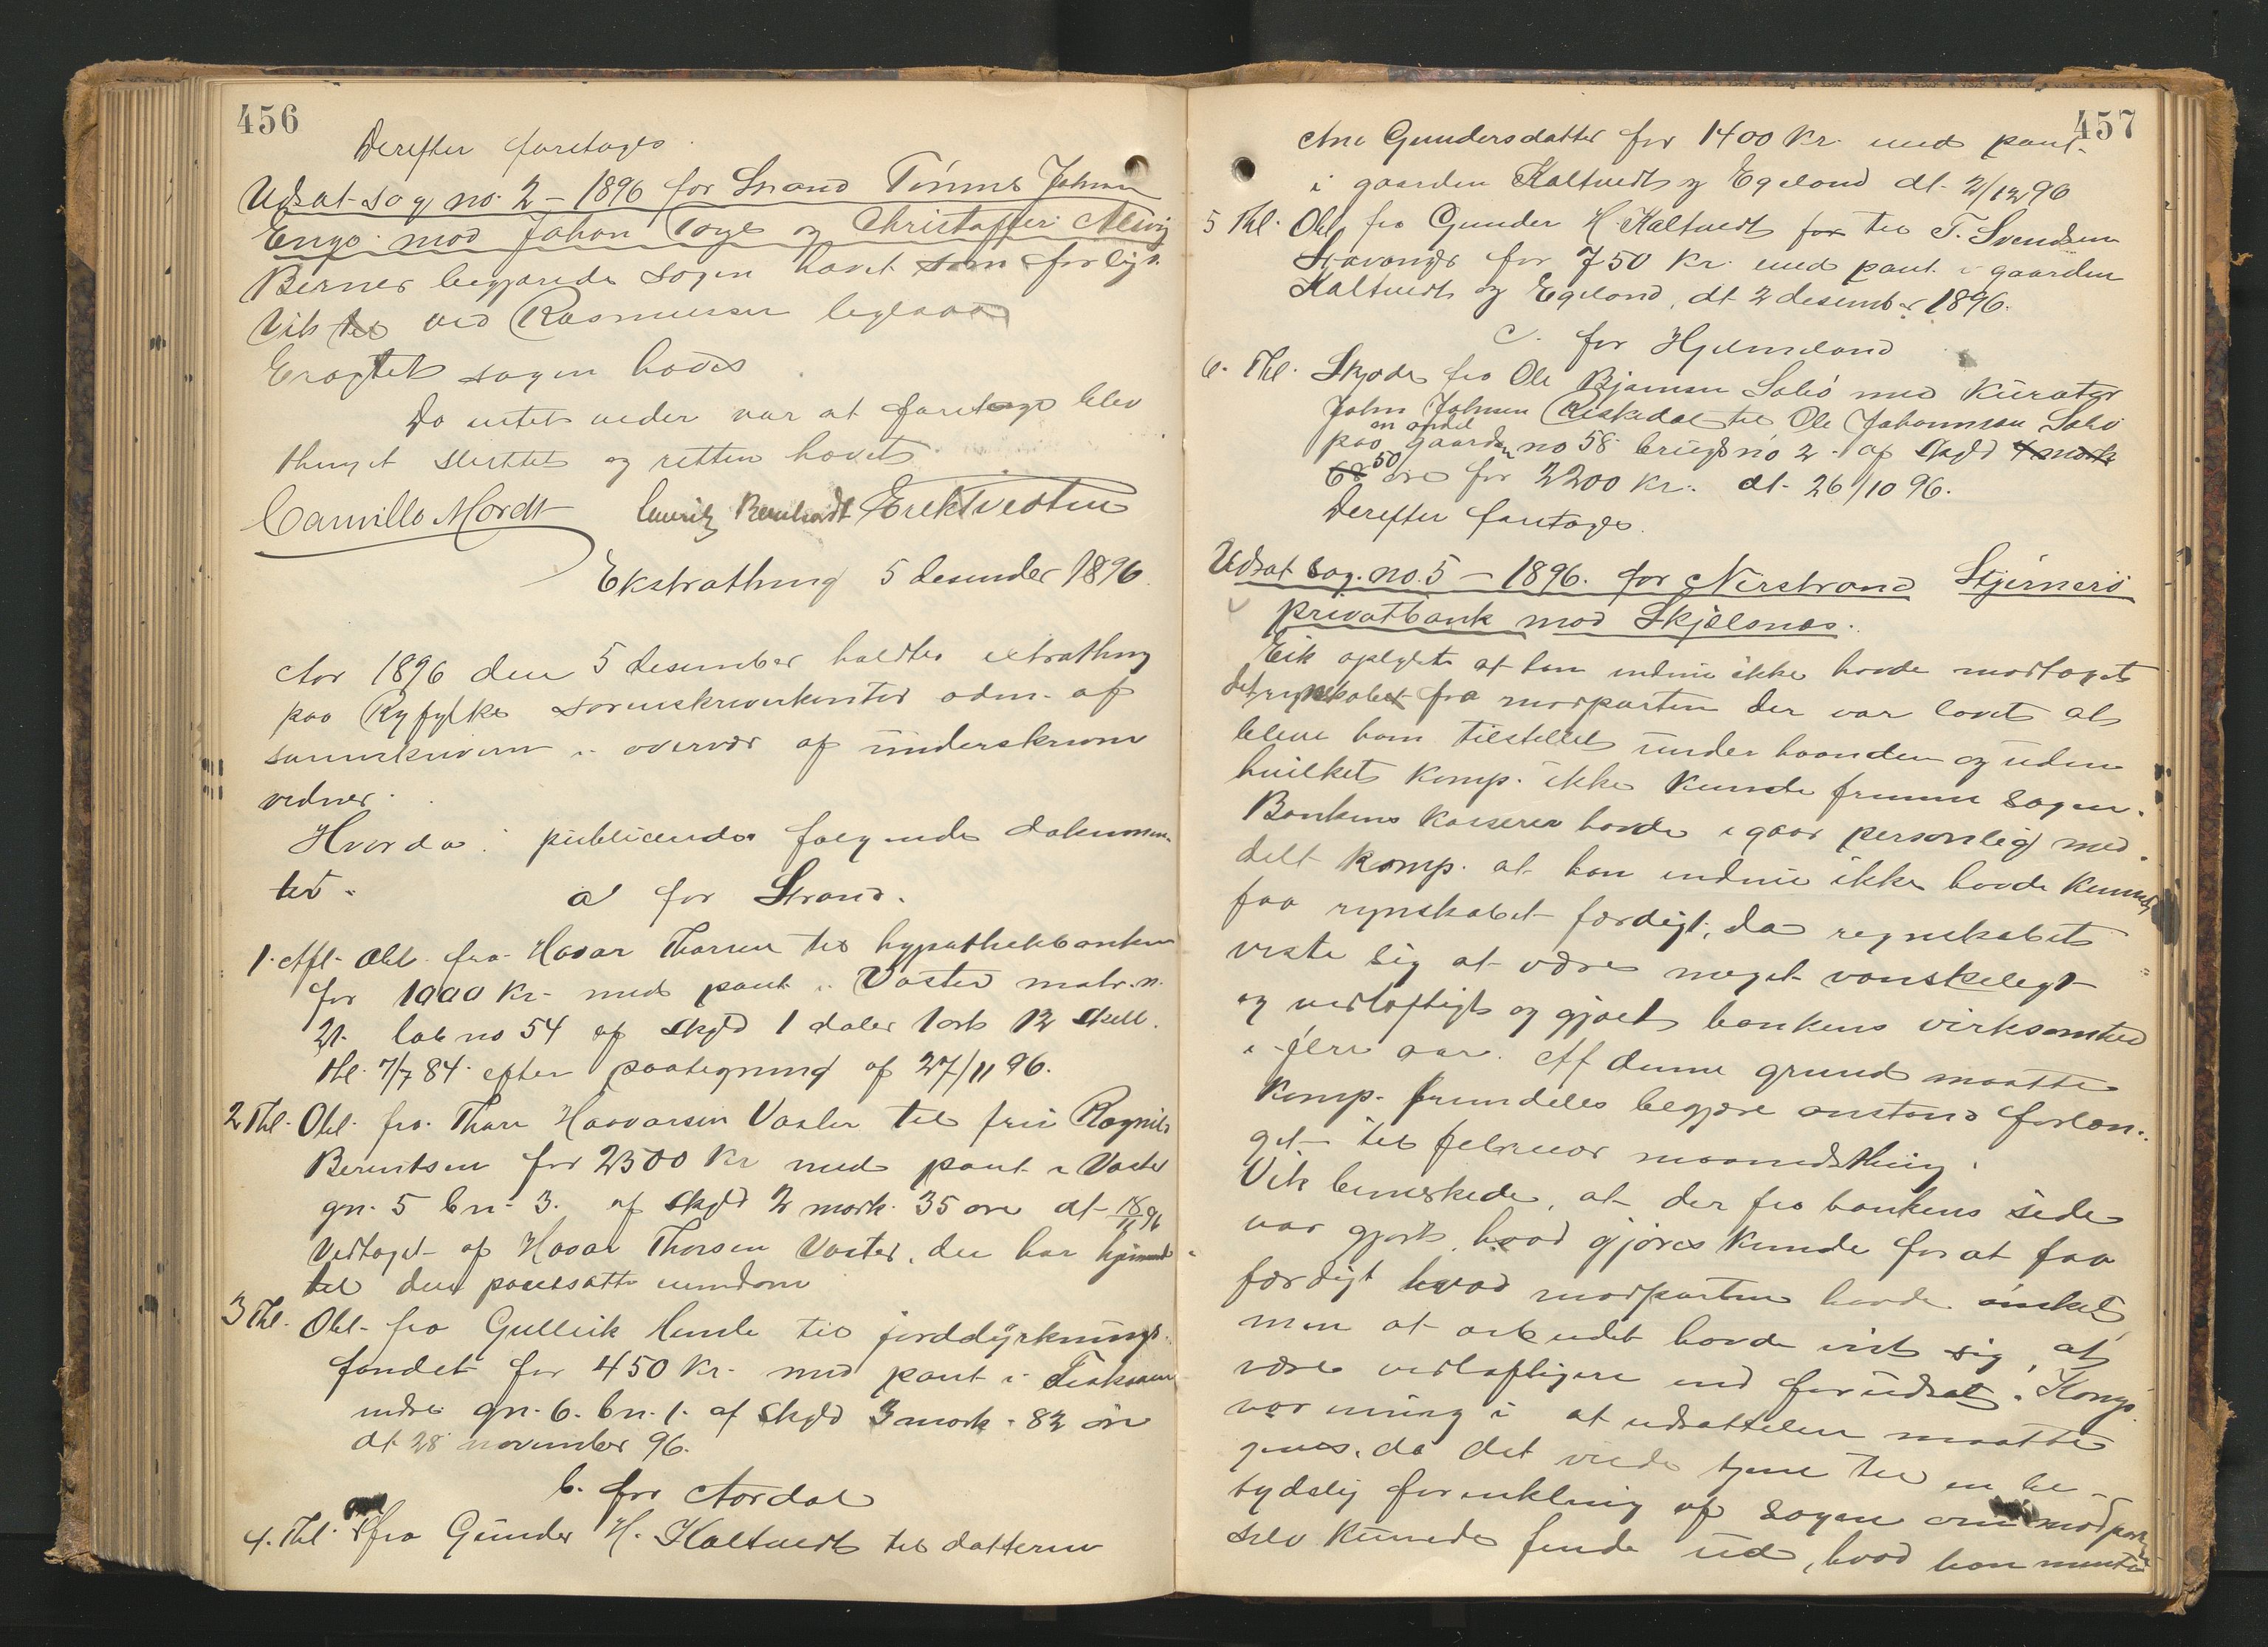 456
Derefter foretoges
Udsat sag no. 2 – 1896 for Strand Tönnes Johnsen
Enge mod Johan Tøge og Christoffer Meling
Berner begjærede sagen hævet som forligt.
Vik til ved Rasmussen ligesaa
Eragtet sagen hæves
Da intet videre var at foretage blev
thinget sluttet og retten hævet
Camillo Mordt Lauritz Bernhardt Erik Tvedten
Ekstrathing 5 desember 1896.
Aar 1896 den 5 desember holdtes extrathing
paa Ryfylke sorenskriverkontor adm. af
sorenskriveren i overvær af underskrevne
vidner.
Hvorda: publiceredes følgende dokumen-
ter.
a for Strand.
1. Afl. Obl. fra Havar Thorsen til hypothekbanken
for 1000 Kr. med pant i Vaster matr. n.
21. løb no 54 af skyld 1 daler 1 ort 12 skill.
thl. 7/7 84. efter paategning af 27/11 96.
2 Thl. Obl. fra Thore Haavarsen Vaster til fru Ragnild
Berentsen for 2300 Kr med pant i Vaster
gn. 5 bn. 3. af skyld 2 mark 35 øre dt 18/11 96
Vedtaget af Havar Thorsen Vaster, der har hjemmel
til den pantsatte eiendom
3 Thl. Obl. fra Gulleik Hemle til jorddyrknings-
fondet for 450 Kr. med pant i
indre gn. 6. bn. 1. af skyld 3 mark 82 øre
dt 28 november 96.
b. for Aardal
4. Thl. fra Gunder H. Kaltvedt til datteren
457
Ane Gundersdatter for 1400 Kr. med pant
i gaarden Kaltvedt og Egeland dt. 2/12 96
5 Thl. Obl. fra Gunder H. Kaltvedt for til T. Svendsen
Stavanger for 750 Kr. med pant i gaarden
Kaltvedt og Egeland, dt 2 desember 1896.
c. for Hjelmeland
6. Thl. Skjøde fra Ole Bjørnsen Sabø med Kurator
John Johnsen Riskedal til Ole Johannesen Sabø
paa en andel gaarden no 58 brugs no 2. af skyld 4 mark
68 50 øre for 2200 Kr. dt. 26/10 96.
Derefter foretoges.
Udsat sag. no. 5 – 1896. for Nerstrand Stjernerö
privatbank mod Skjelsnæs.
Eik oplyste at han endnu ikke havde modtaget
det regnskabet fra modparten der var lovet at
blive ham tilstillet under haanden og uden
hvilket Komp. ikke kunde fremme sagen.
Bankens Kasserer havde i gaar personlig med-
delt Komp. at han endnu ikke havde kunnet
faa regnskabet færdigt, da regnskabet
viste sig at være meget vanskeligt
og vidløftigt og gjaldt bankens virksomhed
i flere aar. Af denne grund maatte
Komp. fremdeles begjære anstand forlæn-
get til februar maanedsthing.
Vik bemerkede, at der fra bankens side
var gjort hvad gjøres kunde for at faa
færdigt hvad modparten havde ønsket,
men at arbeidet havde vist sig, at
være vidløftigere end forudsat. Komp.
var enig i at udsættelsen maatte
gives, da det vilde tjene til en be-
tydelig forenkling af sagen om modparten
selv kunde finde ud, hvad han mente